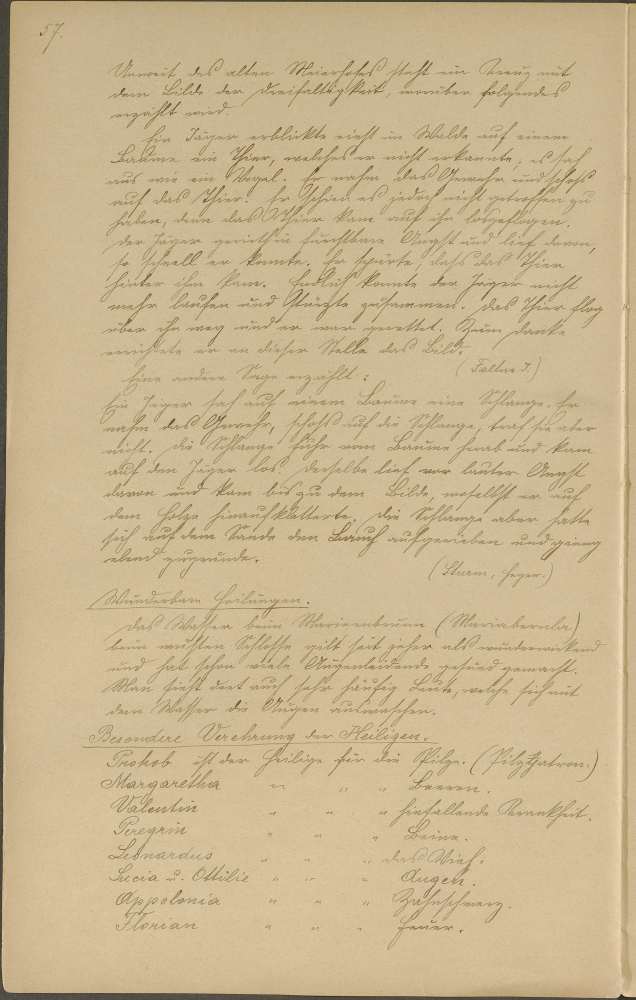 57.
Unweit des alten Meierhofes steht ein Kreuz mit
dem Bilde der Dreifaltigkeit, worüber folgendes
erzählt wird.
Ein Jäger erblickte einst im Walde auf einem
Baume ein Thier, welches er nicht erkannte, es sah
aus wie ein Vogel. Er nahm das Gewehr und schoß
auf das Thier. Er schien es jedoch nicht getroffen zu
haben, denn das Thier kam auf ihn losgeflogen.
Der Jäger gerieth in furchtbare Angst und lief davon,
so schnell er konnte. Er spürte, daß das Thier
hinter ihm kam. Endlich konnte der Jäger nicht
mehr laufen und stürzte zusammen. Das Thier flog
über ihn weg und er war gerettet. Zum Danke
errichtete er an dieser Stelle das Bild.
(Faltus J.)
Eine andere Sage erzählt:
Ein Jäger sah auf einem Baume eine Schlange. Er
nahm das Gewehr, schoß auf die Schlange, traf sie aber
nicht. Die Schlange fuhr vom Baume herab und kam
auf den Jäger los. Derselbe lief vor lauter Angst
davon und kam bis zu dem Bilde, woselbst er auf
dem Holze hinaufkletterte. Die Schlange aber hatte
sich auf dem Sande den Bauch aufgerieben und gieng
elend zugrunde.
(Sturm, Heger.)
Wunderbare Heilungen.
Das Wasser beim Marienbrunn (Mariabernla)
beim wüsten Schlosse gilt seit jeher als wunderwirkend
und hat schon viele Augenleidende gesund gemacht.
Man sieht dort auch sehr häufig Leute, welche sich mit
dem Wasser die Augen auswaschen.
Besondere Verehrung der Heiligen.
Prokob ist der Heilige für die Pilze. (Pilzpatron.)
Margaretha " " " Beeren.
Valentin " " " hinfallende Krankheit.
Peregrin " " " Beine.
Leonardus " " " das Vieh.
Lucia u. Ottilie " " " Augen.
Appolonia " " " Zahnschmerz.
Florian " " " Feuer.